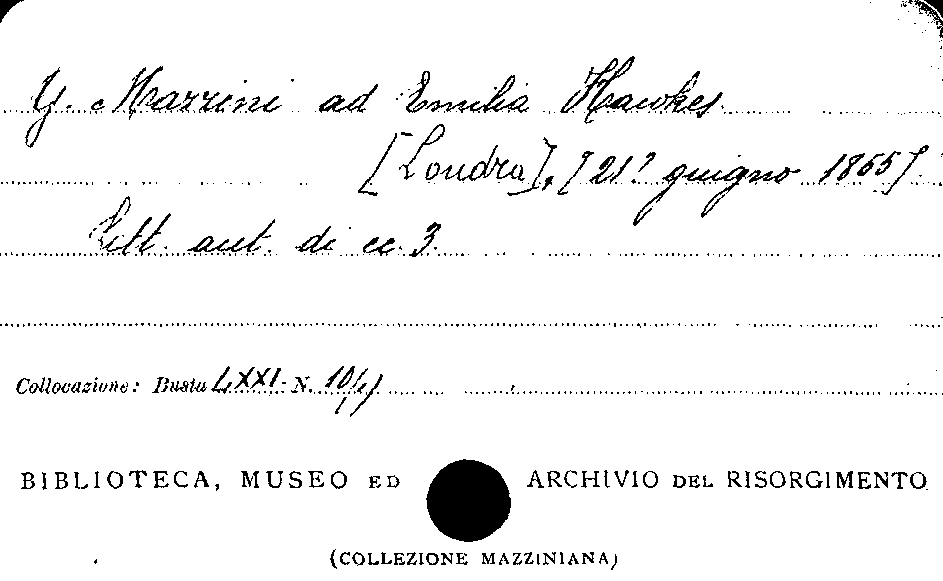 G. Mazzini ad Emilia Hawkes.
[Londra], [21? giugno 1855].
Lett. aut. di cc. 3.
Collocazione: Busta LXXI N.
BIBLIOTECA, MUSEO ED ARCHIVIO DEL RISORGIMENTO
(COLLEZIONE MAZZINIANA)